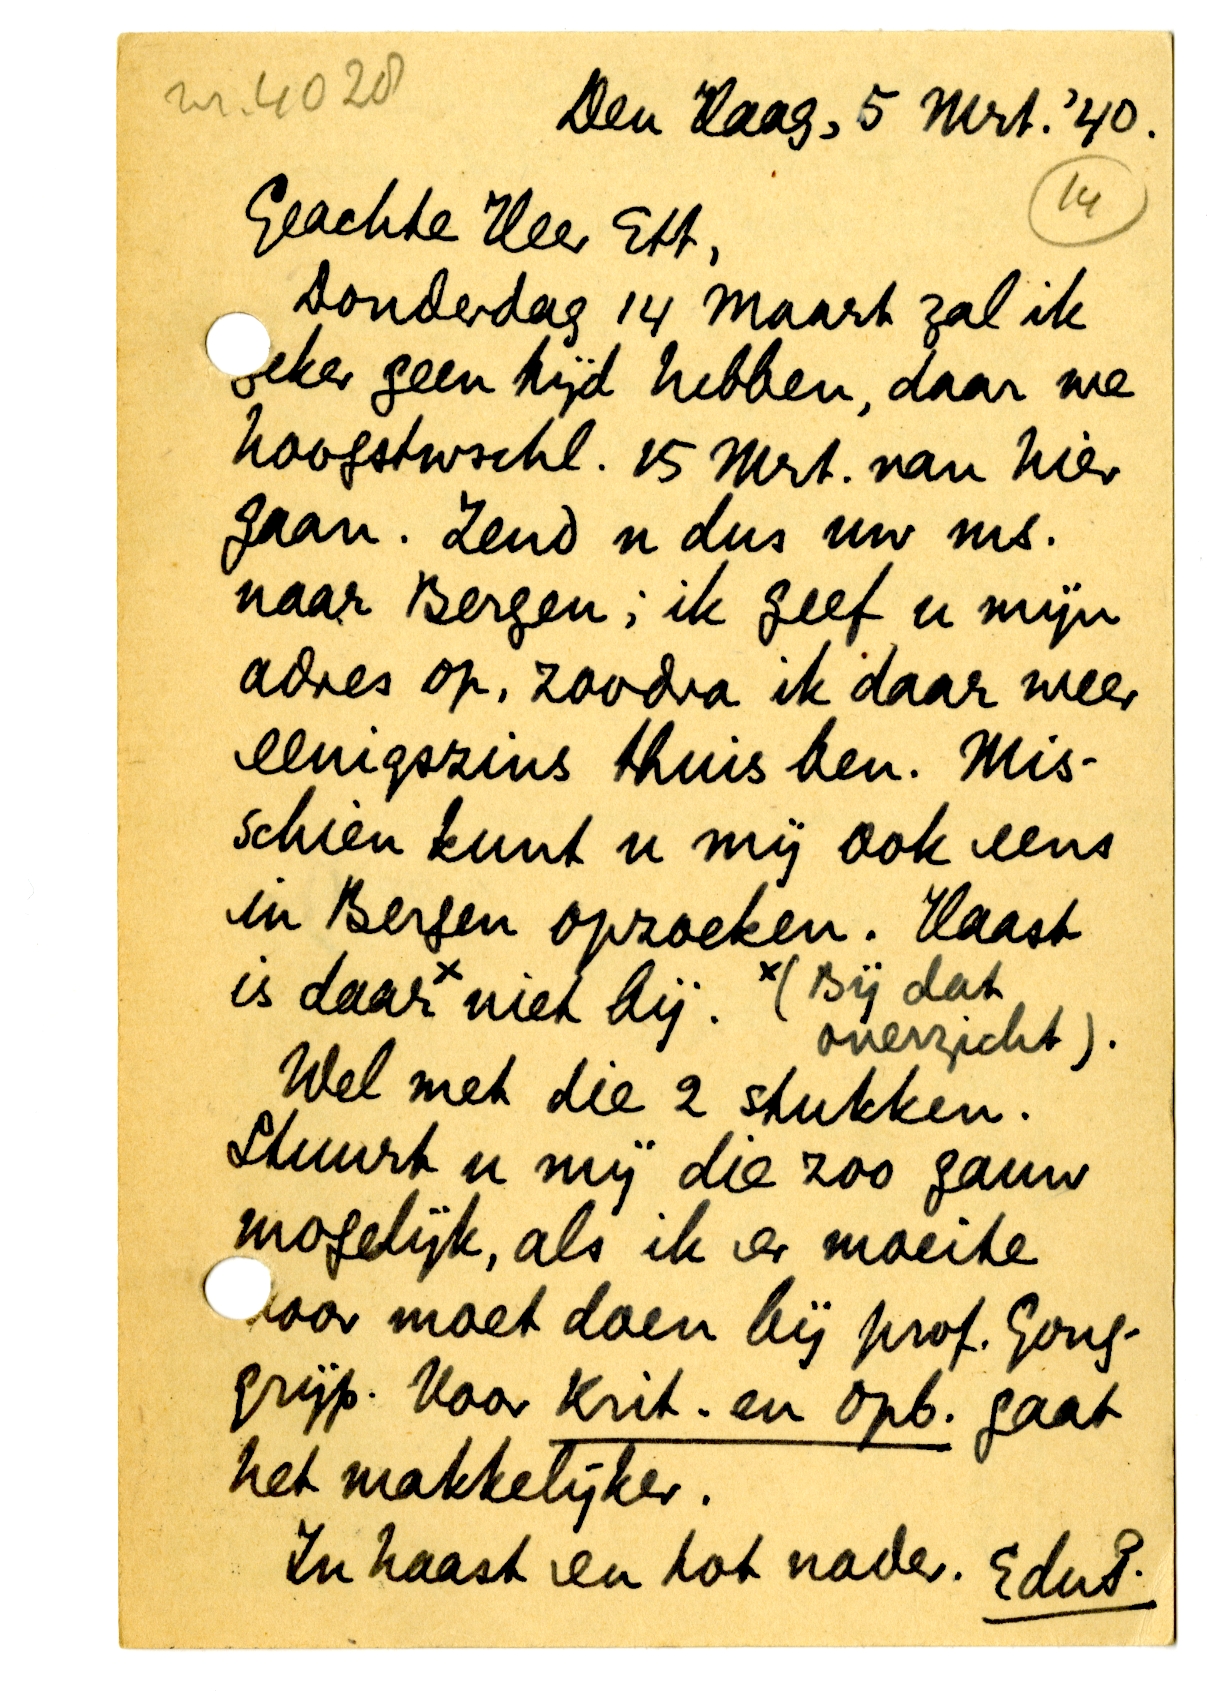 nr. 4028
Den Haag, 5 Mrt. '40.
14
Geachte Heer Ett,
Donderdag 14 Maart zal ik
zeker geen tijd hebben, daar we
hoogstwschl. 15 Mrt. van hier
gaan. Zend u dus uw ms.
naar Bergen; ik geef u mijn
adres op, zoodra ik daar weer
eenigszins thuis ben. Mis-
schien kunt u mij ook eens
in Bergen opzoeken. Haast
is daar x niet bij. x (Bij dat
overzicht).
Wel met die 2 stukken.
Stuurt u mij die zoo gauw
mogelijk, als ik er moeite
voor moet doen bij prof. Gong-
grijp. Voor Krit. en Opb. gaat
het makkelijker.
In haast en tot nader. EduP.